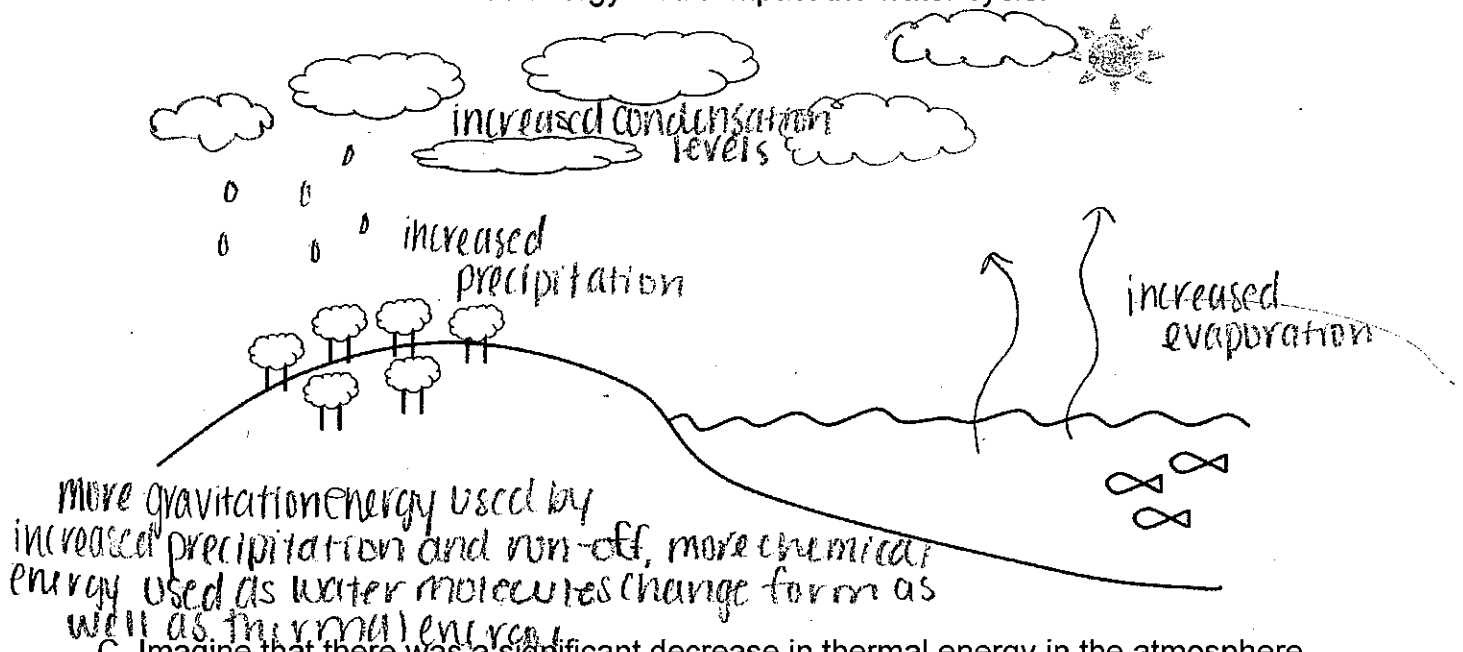 increased condensation
levels
increased
precipitation
increased
evaporation
more gravitation energy used by
increased precipitation and run-off, more chemical
energy used as water molecules change form as
well as thermal energy
C. Imagine that there was a significant decrease in thermal energy in the atmosphere